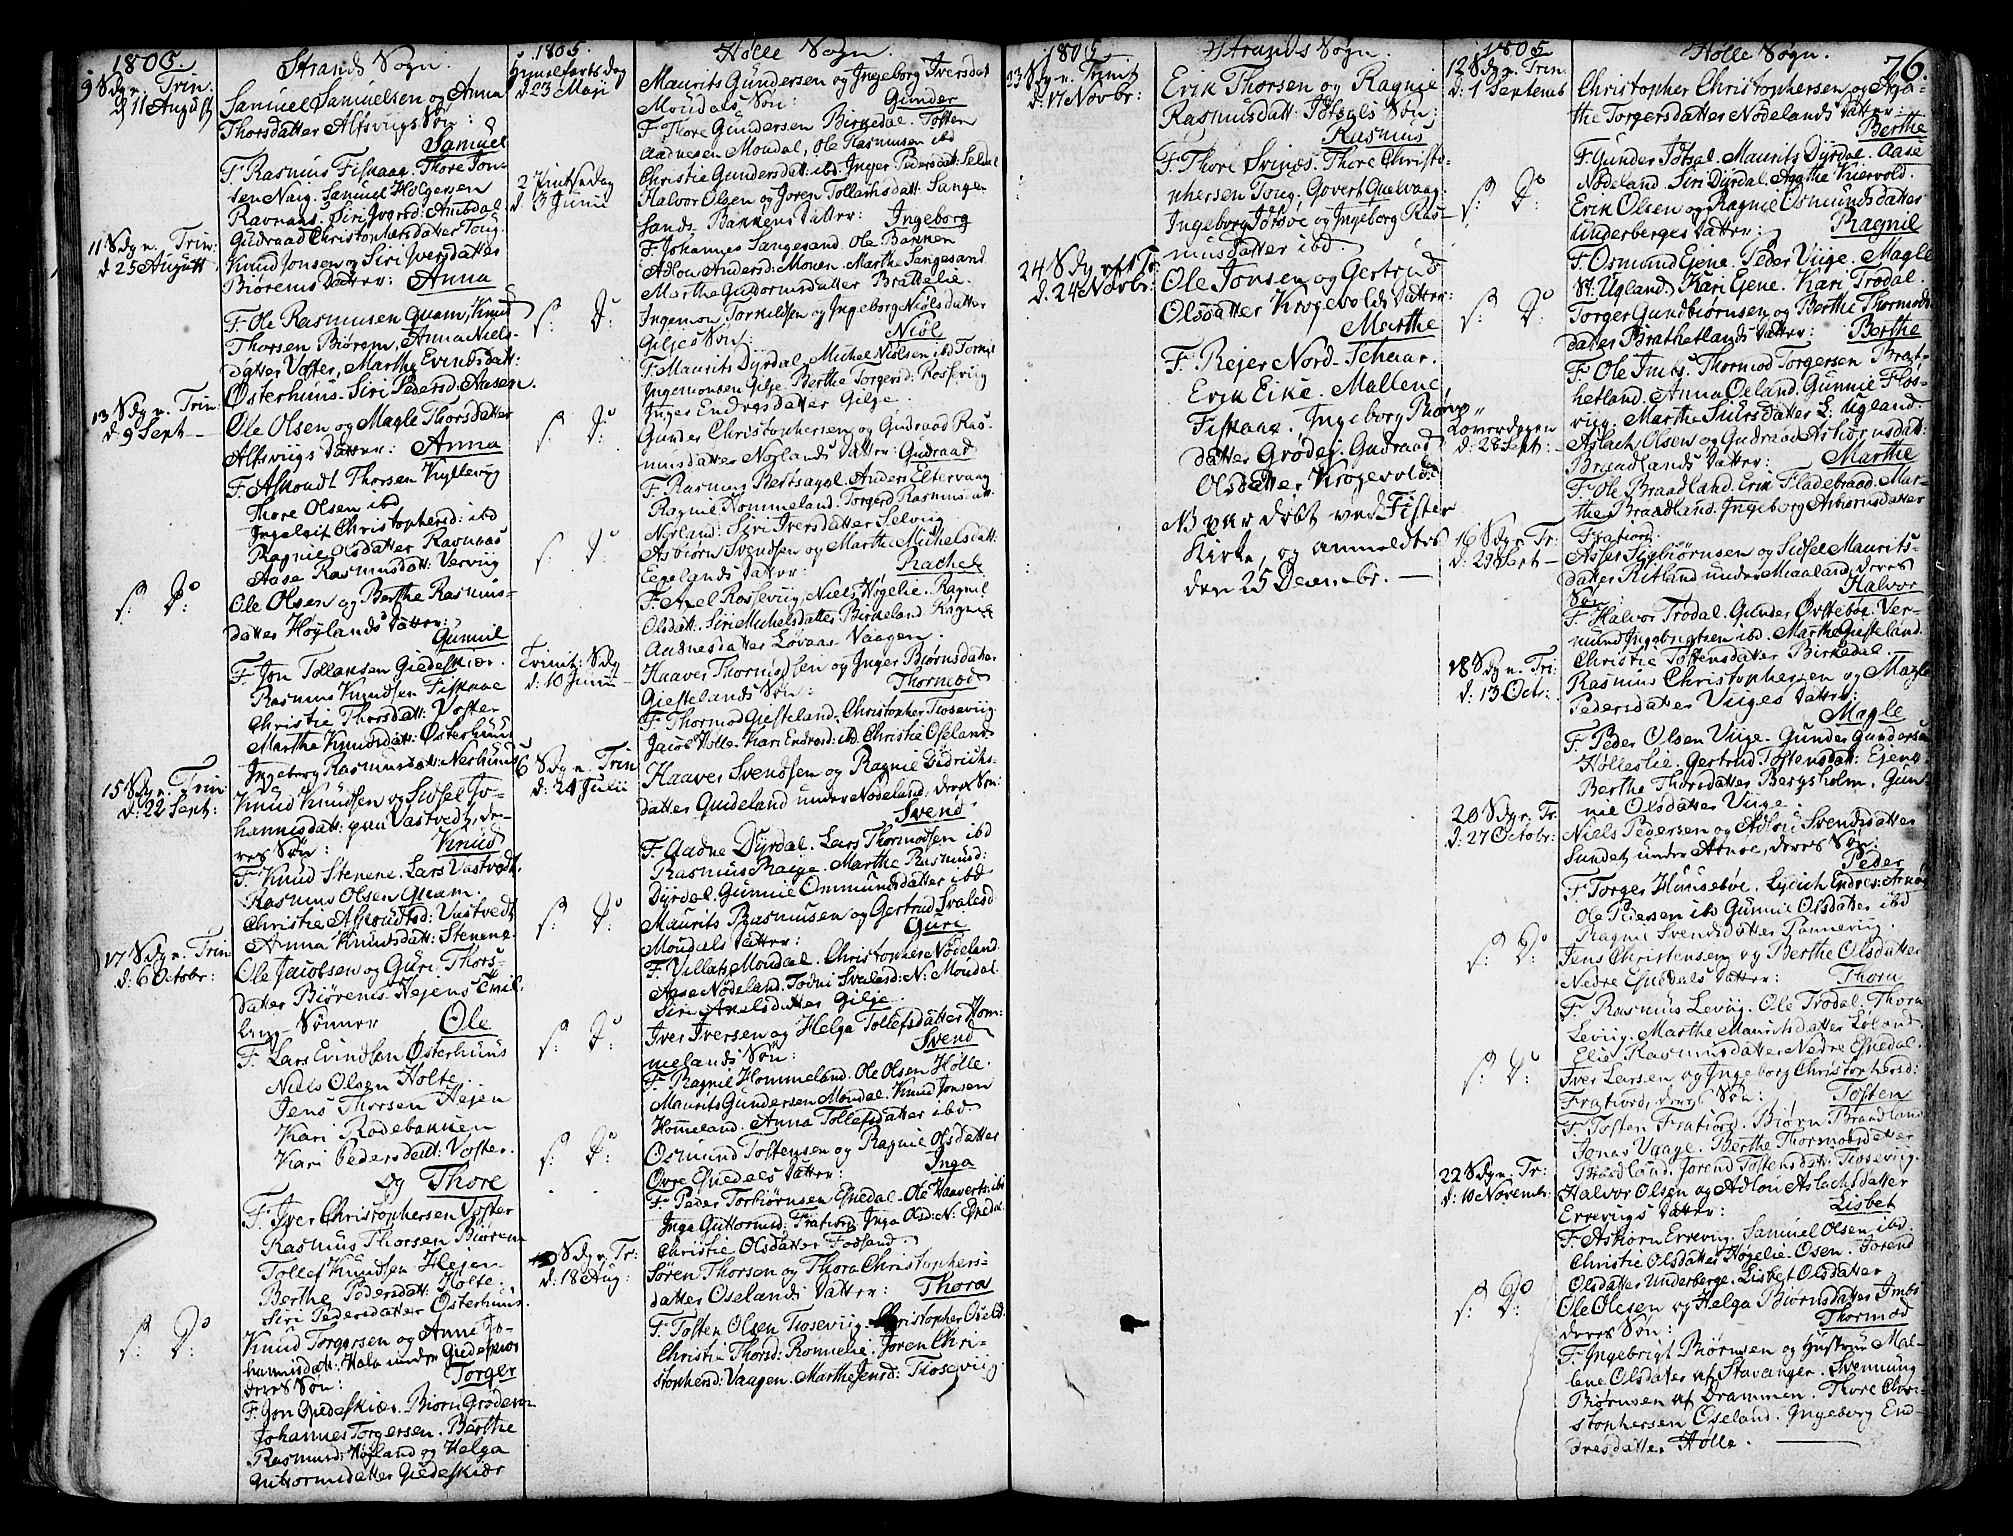 1805.
Strands Sogn.
9 Sdg. e. Trin:
d. 11 August
Samuel Samuelsen og Anna
Thorsdatter Alsviigs Søn:
Samuel
F. Rasmus Fiskaae. Thore Jon-
sen Naig. Samuel Holgersen
Ravnaas. Siri Iversd: Amdal
Gudraad Christophersdatter Toug.
11 Sdg. e. Trin:
d. 25 August
Knud Jonsen og Siri Iversdatter
Biørems Datter: Anna
F. Ole Rasmusen Quam, Knud
Thorsen Biørem, Anna Niels-
datter Voster, Marthe Evindsdatt:
Østerhuus. Siri Pedersd: Aasen.
13 Sdg. e. Trin:
d. 9 Sept
Ole Olsen og Magle Thorsdatter
Alsviigs Datter: Anna
F. Asmondt Thorsen Kyllevig
Thore Olsen ibd
Ingeleit Christophersd: ibd
Ragnie Olsdatter Ravnaas
Aase Rasmusdatt: Verviig
s: D:
Ole Olsen og Berthe Rasmus-
datter Høylands Datter:
Gunnil
F. Jon Tollaksen Giedeskiær.
Rasmus Knudsen Fiskaae
Christie Thorsdatt: Voster
Marthe Knudsdatt: Østerhuus
Ingeborg Rasmusdatt: Nerhuus
15 Sdg. e. Trin
d: 22 Sept:
Knud Knudsen og Sidsel Jo-
hannisdatt: paa Vastvedt, de-
res Søn: Knud
F. Knud Stenene. Lars Vastvedt.
Rasmus Olsen Quam.
Christie Asmondtsd: Vastvedt
Anna Knudsdatt: Stenene.
17 Sdg. e. Trin
d: 6 Octobr:
Ole Jacobsen og Guri Thors-
datter Biørems-Hejens Tvil-
ling-Sønner Ole
F. Lars Evindsen Østerhuus
Niels Olsen Holte.
Jens Thorsen Hejen
Kari Rodebakken
Kari Pedersdatt: Voster.
og Thore
F. Iver Christophersen Voster
Rasmus Thorsen Biørem
Tollef Knudsen Hejen
Berthe Pedersdatt: Holte.
Siri Pedersdatter Østerhuus.
s: D:
Knud Torgersen og Anne Jo-
hannisdatt: Hala under Giedeskiær
deres Søn: Torger
F. Jon Giedeskiær. Biørn Grødem
Johannes Torgersen. Berthe
Rasmusd: Høyland og Helga
Guttormsdatter Giedeskiær
1805.
Holle Sogn.
Himelfarts dag
d: 23 Maji
Maurits Gundersen og Ingeborg Iversdat
Moudals Søn: Gunder
F. Thore Gundersen Birkedal. Tosten
Aadnesen Moudal, Ole Rasmusen ibd
Christie Gundersdatt: ibd. Inger Pedersdatt:
2 Pintsedag
d. 3 Junii
Halvor Olsen og Joren Tollachsdatt: Sange
Sands-Bakkens Datter: Ingeborg
F. Johannes Sangesand. Ole Bakken
Adlou Andersd: Mouen. Marthe Sangesand
Marthe Gudormsdatter Brattelie.
s: D:
Ingemon Torkildsen og Ingeborg Nielsdatter
Giljes Søn: Niel
F. Maurits Dyrdal, Michel Nielsen ibd Tormo
Ingemonsen Gilje. Berthe Torgersd: Rosseviig
Inger Endresdatter Gilje.
s: D:
Gunder Christophersen og Gudraad Ras-
musdatter Norlands Datter: Gudraad
F. Rasmus Bertsagel. Anders Eltervaag
Ragnil Hommeland. Torgerd Rasmusdatt
Norland: Siri Iversdatter Selviig
s: D:
Asbiørn Svendsen og Marthe Michelsdatt:
Eegelands Datter: Rachel
F. Axel Rosseviig, Niels Høgelie. Ragnil
Olsdatt. Siri Michelsdatter Birkeland. Ragnil
Aadnesdatter Løvaas-Vaagen.
Trinit: Sdg
d: 10 Junii
Haaver Thormodsen og Inger Biørnsdatter
Giestelands Søn: Thormod
F. Thormod Giesteland. Christopher Tioseviig.
Jacob Holle. Kari Endresd: ibd. Christie Oseland
6 Sdg. e. Trin
d: 21 Julii
Haaver Svendsen og Ragnil Didrichs-
datter Guideland under Nødeland, deres Søn:
Svend
F. Aadne Dyrdal. Lars Thormodsen ibd
Rasmus Raige. Marthe Rasmusd:
Dyrdal. Gunnil Ommundsdatter ibd
s: D:
Maurits Rasmusen og Gertrud Svalesd
Moudals Datter: Guri
F. Villats Moudal. Christopher Nødeland.
Aase Nødeland. Todni Svalesd: N: Moudal.
Siri Axelsdatter Gilje.
s: D:
Iver Iversen og Helga Tollefsdatter Hom-
melands Søn: Svend
F. Ragnil Hommeland. Ole Olsen Holle.
Maurits Gundersen Moudal. Knud Jonsen
Homeland. Anna Tollefsdatter ibd.
s: D:
Osmund Tostensen og Ragnil Olsdatter
Øvre Espedals Datter: Inga
F. Peder Torbiørnsen Espedal. Ole Haaverts: ibd
Inga Guttormsd: Fratiord Inga Olsd: N: Espedal
Christie Olsdatter Fossand
10 Sdg. e. Tr:
d: 18 Aug:
Sören Thorsen og Thora Christophers-
datter Oselands Datter: Thora
F. Tosten Olsen Tioseviig. Christopher Oseld
Christie Thorsd: Ronnelie. Joren Chri-
stophersd: Vaagen. Marthe Jensd: Tioseviig
1805
Strands Sogn.
23 Sdg. e. Trinit
d. 17 Novbr:
Erik Thorsen og Ragnil
Rasmusdatt: Idtsals Søn:
Rasmus
F. Thore Svines. Thore Christo-
phersen Toug, Govert Gualvaag.
Ingeborg Idsøe og Ingeborg Ras-
musdatter ibd
24 Sdg eft Tr:
d. 24 Novbr:
Ole Jonsen og Gertrud
Olsdatter Krogevolds Datter:
Marthe
F. Rejer Nord-Scheiar.
Erik Eike. Mallene
Fiskaae. Ingeborg Biørns
datter Grødej. Gudraad
Olsdatter Krogevold.
NB var døbt ved Fister
Kirke, og anmeldtes
den 25 Decembr. —
1805.
Holle Sogn.
76.
12 Sdg. e. Trin.
d: 1 Septemb
Christopher Christophersen og Aga-
the Torgersdatter Nødelands Datter:
Berthe
F. Gunder Idtsal. Maurits Dyrdal. Aase
Nødeland. Siri Dyrdal. Agathe Kiervold.
s: D:
Erik Olsen og Ragnil Osmundsdatter
Underberges Datter: Ragnil
F. Osmund Ejene. Peder Viige. Magle
St. Ugland. Kari Ejene. Kari Trodal.
s: D:
Torger Gundbiørnsen og Berthe Thormods
datter Brathetlands Datter: Berthe
F. Ole Imbs. Thormod Torgersen Brat-
hetland. Anna Oeland. Gunnil Flos-
viig. Marthe Siursdatter L: Ugland.
Løverdagen
d: 28 Sept:
Aslach Olsen og Gudraad Asbiørnsdatt:
Braadlands Datter: Marthe
F. Ole Braadland. Erik Fladebraad. Mar-
the Braadland. Ingeborg Asbiørnsdatter
Fratiord.
16 Sdg. e. Tr:
d: 29 Sept —
Asser Sigbiørnsen og Sidsel Maurits-
datter Ritland under Miaaland, deres
Søn: Halvor
F. Halvor Trodal. Gunder Øvsteboe. Ver-
mund Ingebrigtsen ibd. Marthe Giesteland.
Christie Tostensdatter Birkedal.
18 Sdg. e. Tri:
d. 13 Oct:
Rasmus Christophersen og Magle
Pedersdatter Viiges Datter:
Magle
F. Peder Olsen Viige. Gunder Gundersen
Hølleslie. Gertrud Tostensdatt: Ejene.
Berthe Thorsdatter Bergsholm. Gun-
nil Olsdatter Viige.
20 Sdg. e. Tr.
d: 27 Octobr:
Niels Pedersen og Adlou Svendsdatter
Sundet under Adnøe, deres Søn:
Peder
F. Torger Huusebøe. Lydich Endres: Adnøe
Ole Pedersen ibd Gunnil Olsdatter ibd
Ragnil Svendsdatter Tonneviig.
s: D:
Jens Christensen og Berthe Olsdatter
Nedre Espedals Datter: Thorn
F. Rasmus Leviig. Ole Trodal. Thorn
Leviig. Marthe Mauritsdatter Løland.
Elie Rasmusdatter Nedre Espedal.
s: D:
Iver Larsen og Ingeborg Christophersd:
Fratiord, deres Søn: Tosten
F. Tosten Fratiord. Biørn Braadland
Jonas Vaage. Berthe Thormodsdatter
Braadland. Jorend Tostensdatt: Tioseviig.
22 Sdg. e. Tr:
d: 10 Novemb:
Halvor Olsen og Adlou Aslachsdatter
Erreviigs Datter: Lisbet
F. Askorn Erreviig. Samuel Olsen ibd.
Christie Olsdatter Høgelie-Osen. Jorend
Olsdatter Underberge. Lisbet Olsdatter
s: D:
Ole Olesen og Helga Biørnsdatter Imbs
deres Søn: Thormod
F. Ingebrigt Biørnsen og Hustrue Mal-
lene Olsdatter af Stavanger. Svennung
Biørnsen af Drammen. Thore Chri-
stophersen Oseland. Ingeborg End-
resdatter Holle. —